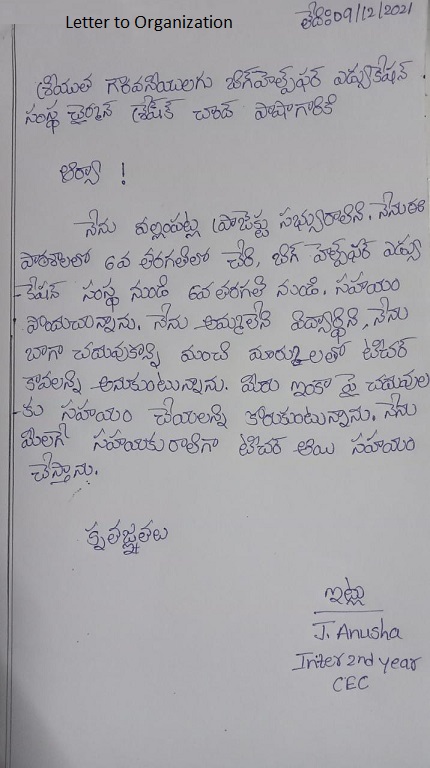 Letter to Organization
తేది:09/12/2021
శ్రీయుత గౌరవనీయులగు బిగ్‌హెల్ప్‌ఫర్ ఎడ్యుకేషన్
సంస్థ చైర్మన్ షేక్ చాంద్ పాషాగారికి
ఆర్యా !
నేను వల్లంపట్ల ప్రాజెక్టు సభ్యురాలిని. నేను ఈ
పాఠశాలలో 6వ తరగతిలో చేరి, బిగ్ హెల్ప్‌ఫర్ ఎడ్యు
-కేషన్ సంస్థ నుండి 6వ తరగతి నుండి. సహయం
పొయచున్నాను. నేను అమ్మలేని విద్యార్థిని, నేను
బాగా చదువుకొన్ని మంచి మార్కులతో టీచర్
కావలన్ని అనుకుంటున్నాను. మీరు ఇంకా పై చదువుల
-కు సహయం చేయలన్ని కోరుకుంటున్నాను. నేను
మీలగే సహయకురాలిగా టీచర్ అయి సహయం
చేస్తాను.
కృతజ్ఞతలు
ఇట్లు
J. Anusha
Inter 2nd year
CEC